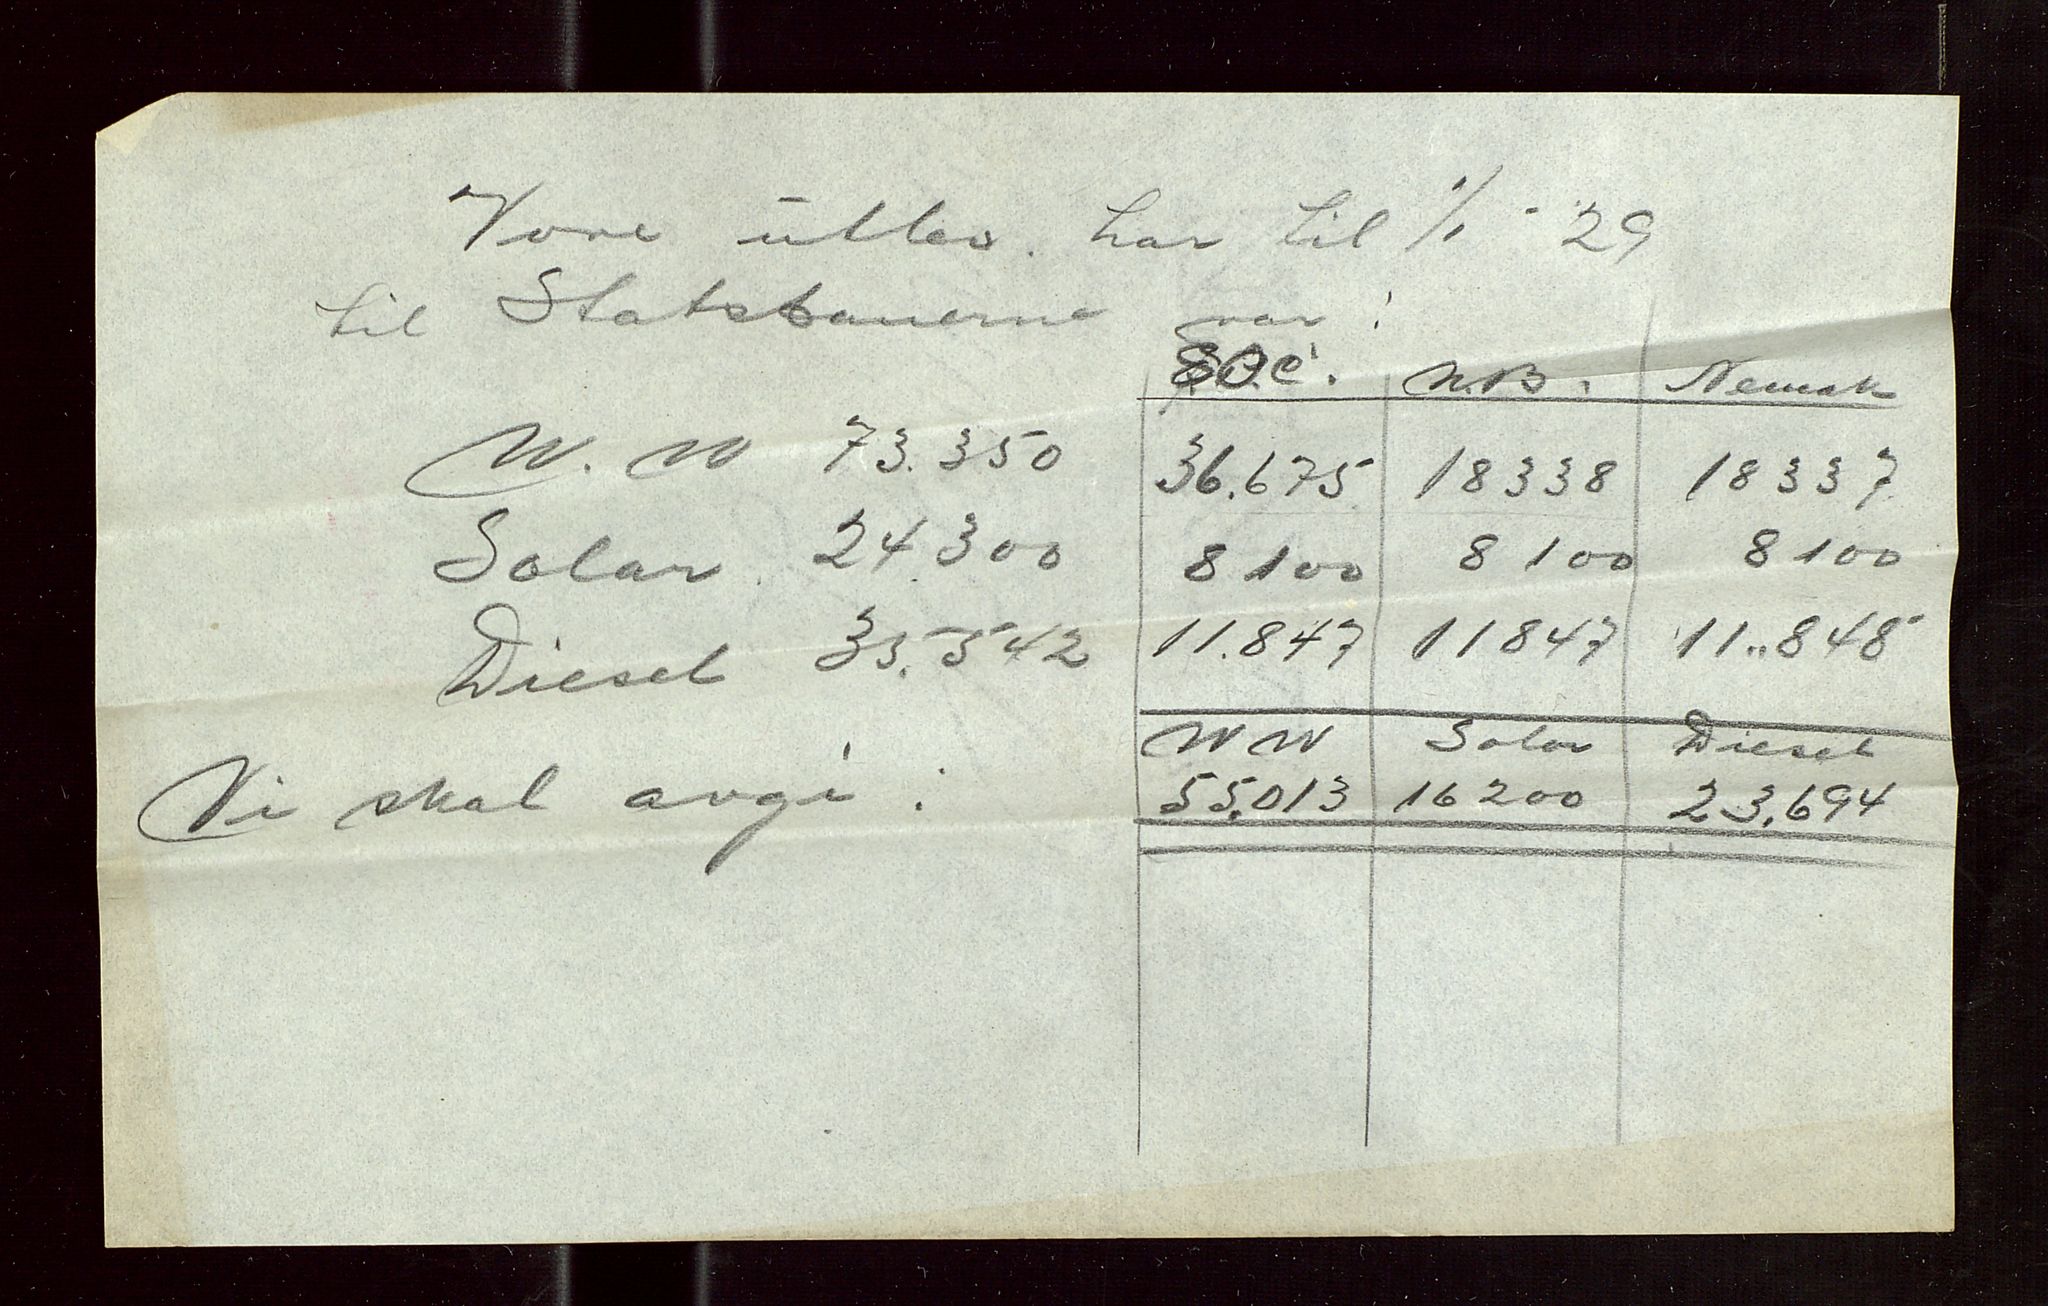 Vore utlev. har til 1/1 - 29
til Statsbanerne var :
Ø.C. N.B. Nemak
W. W 73.350 36.675 18338 18337
Solar 24300 8100 8100 8100
Diesel 35.542 11.847 11847 11..848
W W Solar Diesel
Vi skal avgi : 55.013 16200 23.694